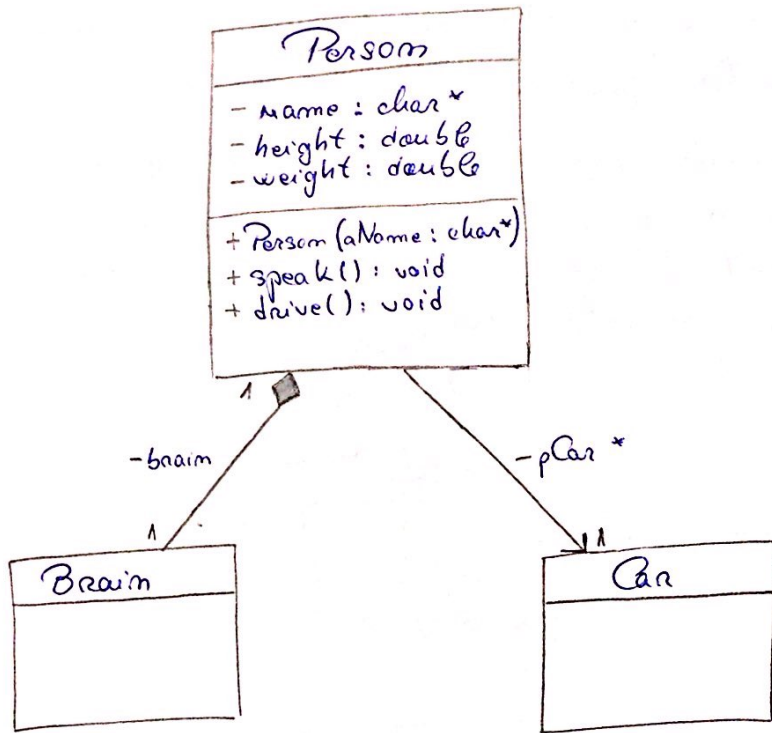 Person
- name : char*
- height : double
- weight : double
+ Person (aName : char*)
+ speak() : void
+ drive() : void
1
-brain
-pCar *
1
1
Brain
Car